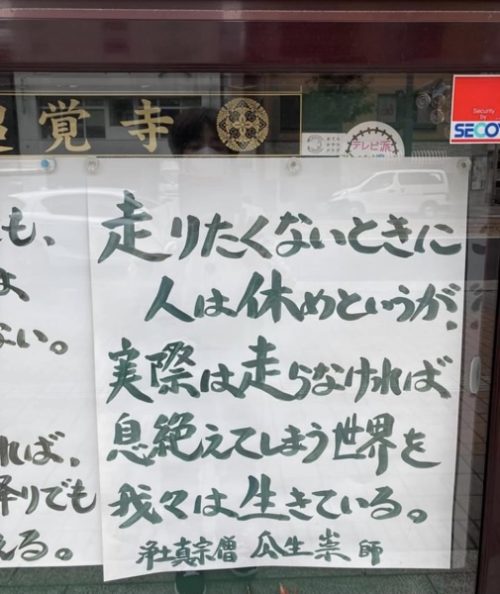 覚寺
テレビ派
Security
by
SECO
走りたくないときに
人は休めというが、
実際は走らなければ
息絶えてしまう世界を
我々は生きている。
浄土真宗僧 瓜生崇 師
も、
ない。
れば、
降りでも
える。